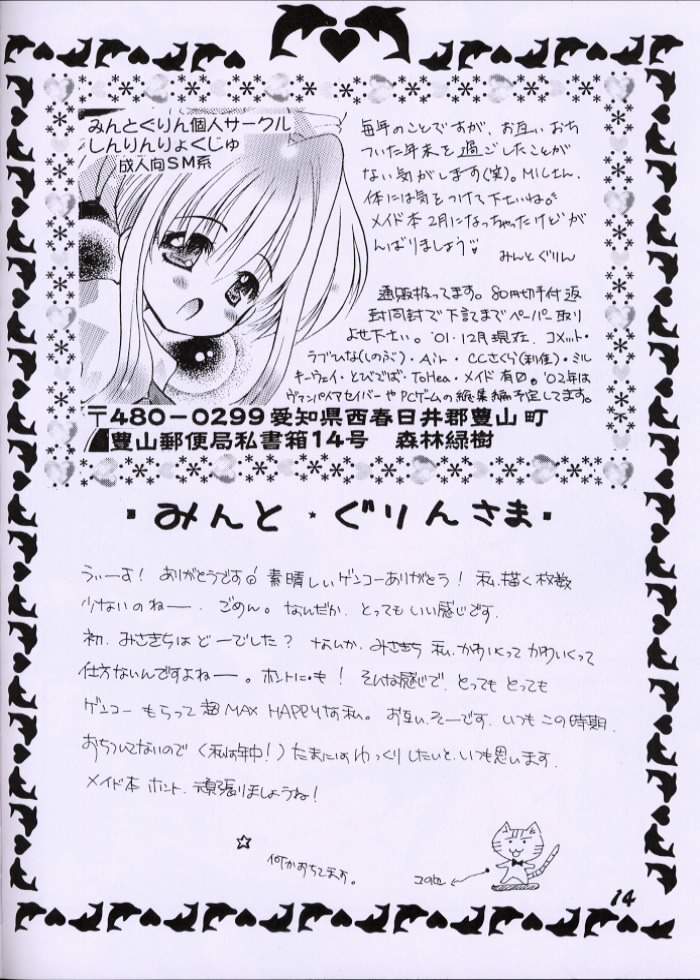 みんとぐりん個人サークル
しんりんりょくじゅ
成人向SM系
毎年のことですが、お互いおち
ついた年末を過ごしたことが
ない気がします(笑)。MICさん、
体には気をつけて下さいね。
メイド本2月になっちゃったけどが
んばりましょう
みんとぐりん
通販扱ってます。80円切手付返
封同封で下記までペーパー取り
よせ下さい。'01・12月現在、コメット・
ラブひな(しのぶ)・Air・CCさくら(利佳)・ミル
キーウェイ・とびでばば・ToHea・メイド有り。'02年は
ヴァンパイアセイバーやPCゲームの総集編予定してます。
〒480-0299愛知県西春日井郡豊山町
豊山郵便局私書箱14号 森林緑樹
みんと・ぐりんさま
うぃーす! ありがとうです 素晴しいゲンコーありがとう! 私、描く枚数
少ないのねー、ごめん。なんだか、とってもいい感じです。
初、みさきちはどーでした? なんか、みさきち 私、かわいくって かわいくって
仕方ないんですよねー。ホントにも! そんな感じで、とっても とっても
ゲンコー もらって 超MAX HAPPYな私。お互い、そーです、いつもこの時期、
おちついてないので(私は年中!)たまにはゆっくりしたいと、いつも思います。
メイド本 ホント、頑張りましょうね!
☆
何かおちてます。
14